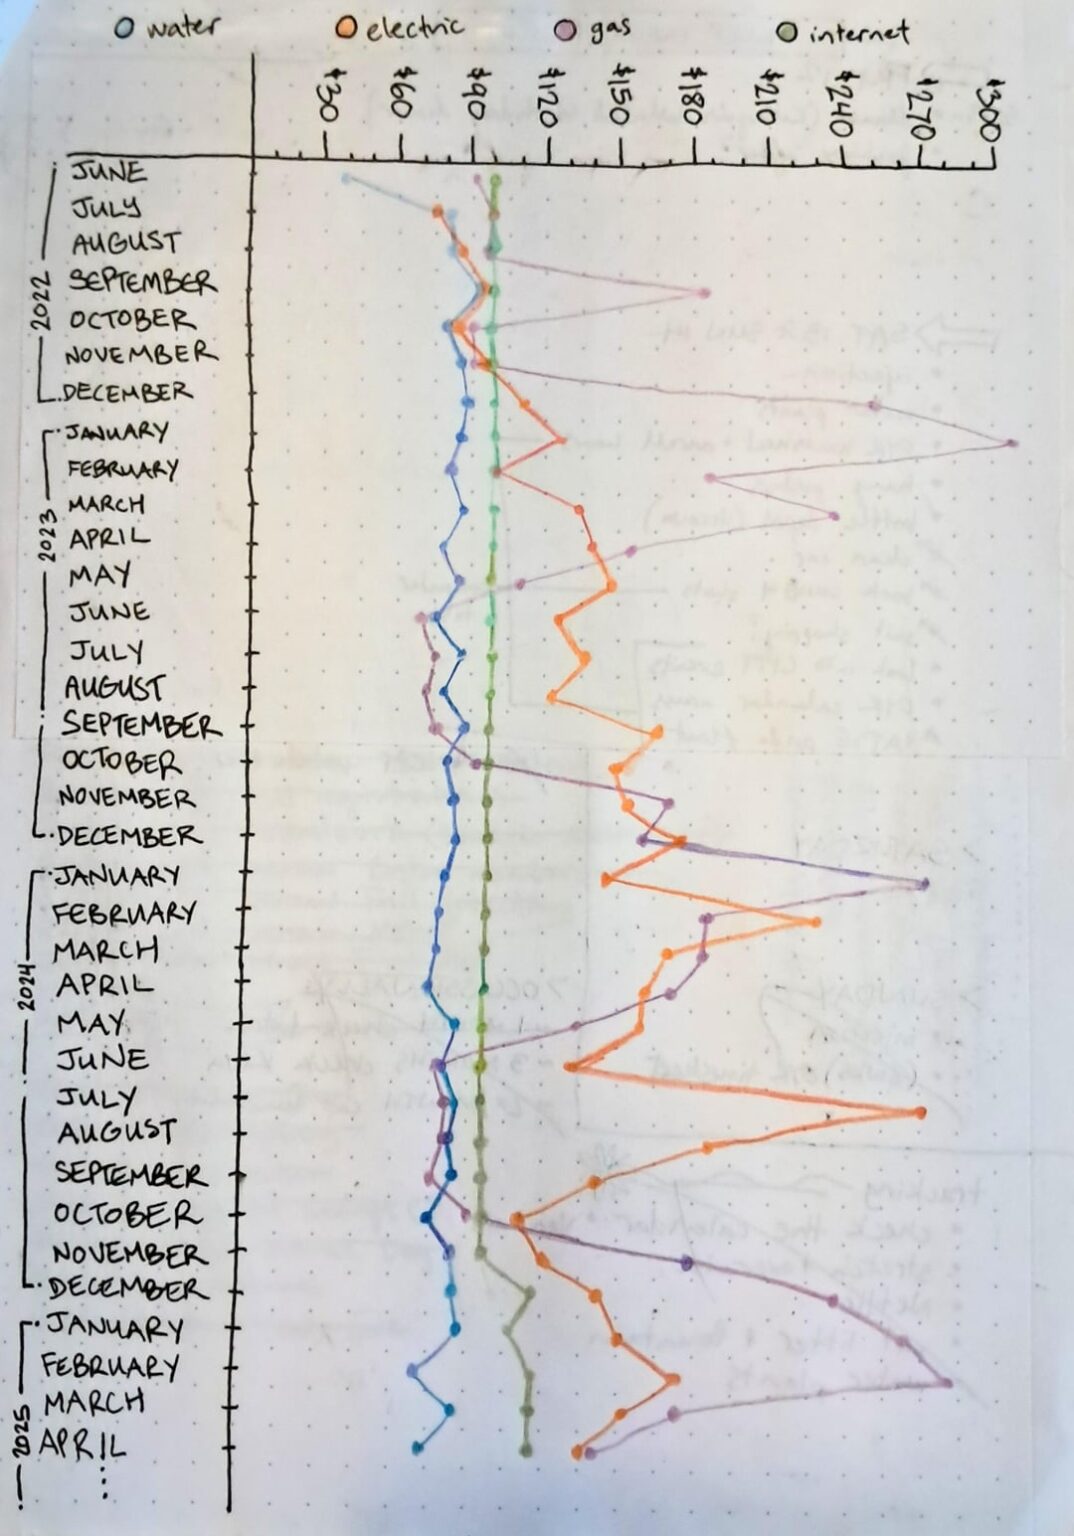 water electric gas internet
$30 $60 $90 $120 $150 $180 $210 $240 $270 $300
2022
JUNE
JULY
AUGUST
SEPTEMBER
OCTOBER
NOVEMBER
DECEMBER
2023
JANUARY
FEBRUARY
MARCH
APRIL
MAY
JUNE
JULY
AUGUST
SEPTEMBER
OCTOBER
NOVEMBER
DECEMBER
2024
JANUARY
FEBRUARY
MARCH
APRIL
MAY
JUNE
JULY
AUGUST
SEPTEMBER
OCTOBER
NOVEMBER
DECEMBER
2025
JANUARY
FEBRUARY
MARCH
APRIL